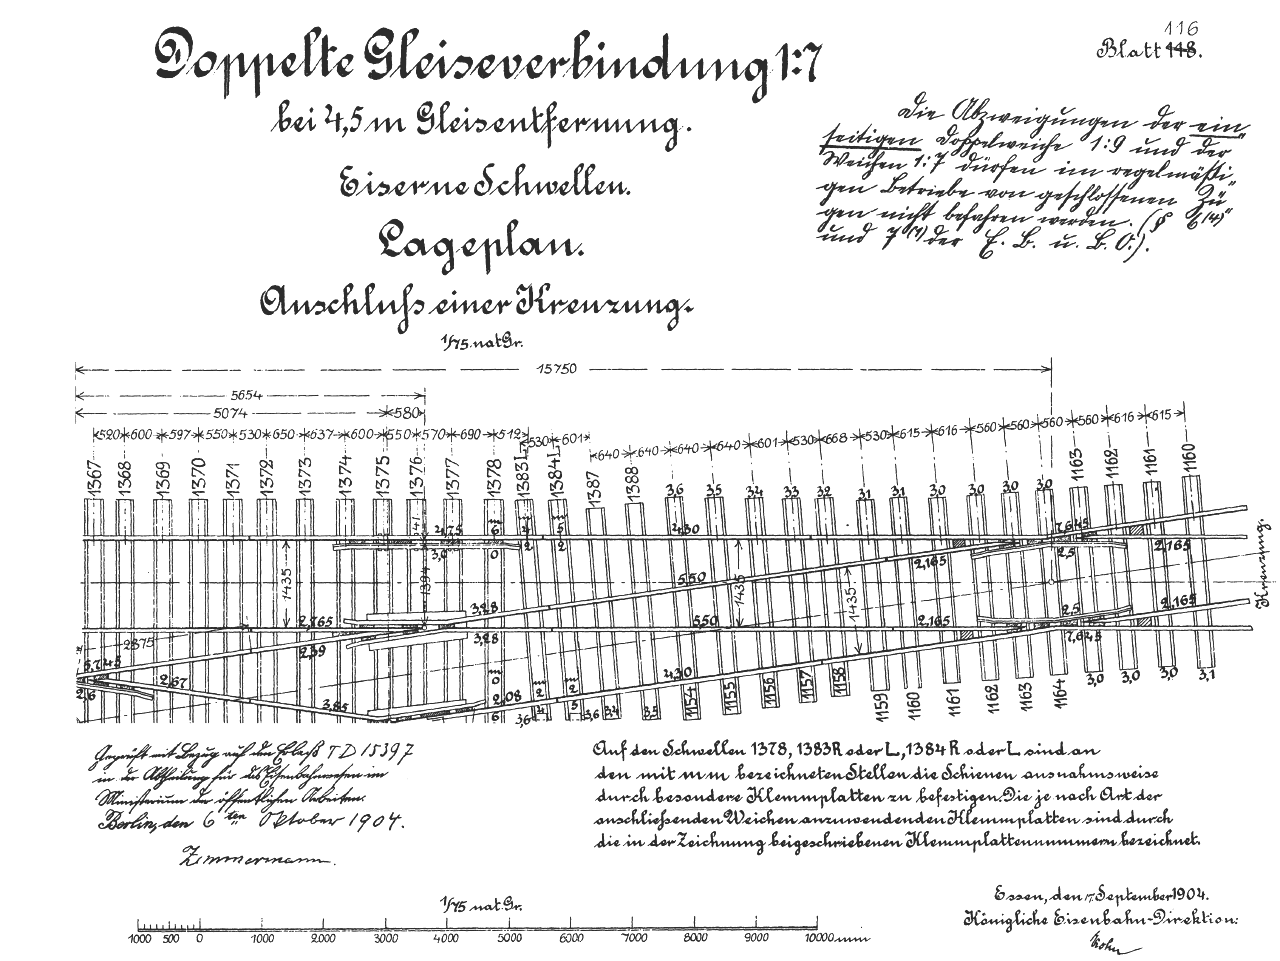 116
Blatt 148.
Doppelte Gleiseverbindung 1:7
bei 4,5 m Gleisentfernung.
Eiserne Schwellen.
Lageplan.
Anschluss einer Kreuzung.
1/75 nat Gr.
Die Abzweigungen der ein„
seitigen Doppelweiche 1:9 und der
Weichen 1:7 dürfen im regelmäßi„
gen Betriebe von geschlossenen Zü„
gen nicht befahren werden. (§ 6(14)
und 7 (1) der E. B. u. B. O.).
15750
5654
5074 580
520 600 597 550 530 650 637 600 550 570 690 512 530 601 640 640 640 640 601 530 668 530 615 616 560 560 560 560 616 615
1367 1368 1369 1370 1371 1372 1373 1374 1375 1376 1377 1378 1383L 1384L 1387 1388 3,6 3,5 3,4 3,3 3,2 3,1 3,1 3,0 3,0 3,0 3,0 1163 1162 1161 1160
41 4,75 m 6 m 4 m 5 4,30 7,645
3,0 0 2 2 2,165 2,5 2,165
1435 1394 5,50 1435 1435 Kreuzung.
2,765 3,28 5,50 2,165 2,5 2,165
2875 2,39 3,28 7,645
5,745 2,67 m 0 4,30
2,6 3,85 2,08 m 2 m 2
6 3,6 4 5 3,6 3,4 3,5 1154 1155 1156 1157 1158 1159 1160 1161 1162 1163 1164 3,0 3,0 3,0 3,1
Geprüft mit Bezug auf den Erlaß T D 15397
in der Abtheilung für das Eisenbahnwesen im
Ministerium der öffentlichen Arbeiten.
Berlin, den 6ten Oktober 1904.
Zimmermann.
Auf den Schwellen 1378, 1383R oder L, 1384R oder L sind an
den mit m m bezeichneten Stellen die Schienen ausnahmsweise
durch besondere Klemmplatten zu befestigen. Die je nach Art der
anschließenden Weichen anzuwendenden Klemmplatten sind durch
die in der Zeichnung beigeschriebenen Klemmplattennummern bezeichnet.
Essen, den 17. September 1904.
Königliche Eisenbahn-Direktion:
1/75 nat. Gr.
1000 500 0 1000 2000 3000 4000 5000 6000 7000 8000 9000 10000 mm